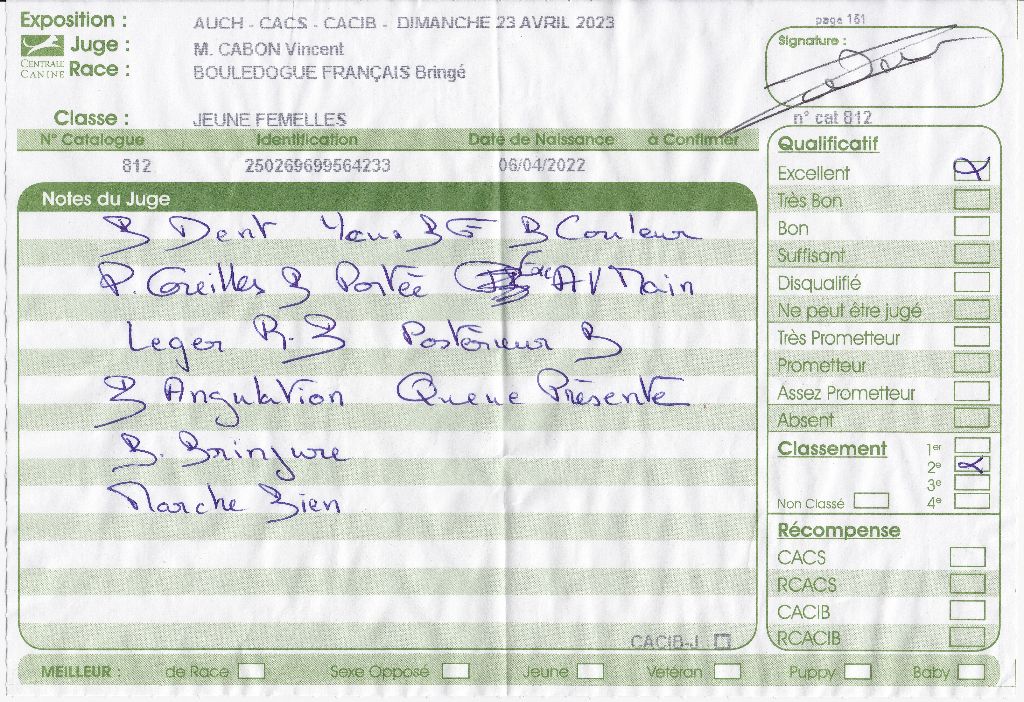 Exposition : AUCH - CACS - CACIB - DIMANCHE 23 AVRIL 2023
page 161
Juge : M. CABON Vincent
Signature :
CENTRALE CANINE
Race : BOULEDOGUE FRANÇAIS Bringé
Classe : JEUNE FEMELLES
n° cat 812
N° Catalogue Identification Date de Naissance à Confirmer
812 250269699564233 06/04/2022
Notes du Juge
B Dent Yeux B F B Couleur
P. Oreilles B Portée AV Main
Leger R. B Postérieur B
B Angulation Queue Présente
B. Bringure
Marche Bien
CACIB-J
Qualificatif
Excellent
Très Bon
Bon
Suffisant
Disqualifié
Ne peut être jugé
Très Prometteur
Prometteur
Assez Prometteur
Absent
Classement 1er
2e
3e
Non Classé 4e
Récompense
CACS
RCACS
CACIB
RCACIB
MEILLEUR : de Race Sexe Opposé Jeune Vétéran Puppy Baby